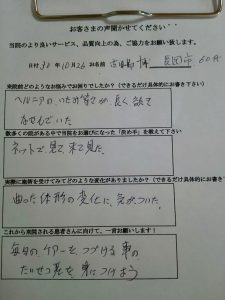 お客さまの声聞かせてください・・
当院のより良いサービス、品質向上の為、ご協力をお願い致します。
日付 30年10月26 お名前 様 60代
来院前どのようなお悩みでお困りでしたか？（できるだけ具体的にお書き下さい）
ヘルニアの いたみ 等で 長く
なやんでいた
数多くの院がある中で当院をお選びになった「決め手」を教えて下さい
ネットで見て来て見た
実際に施術を受けてみてどのような変化がありましたか？（できるだけ具体的にお書き
曲った体形の変化に気がついた。
これから来院される患者さんに向けて、一言お願いします！
毎日の ケアーを つづける 事の
たいせつ差を 身につけよう